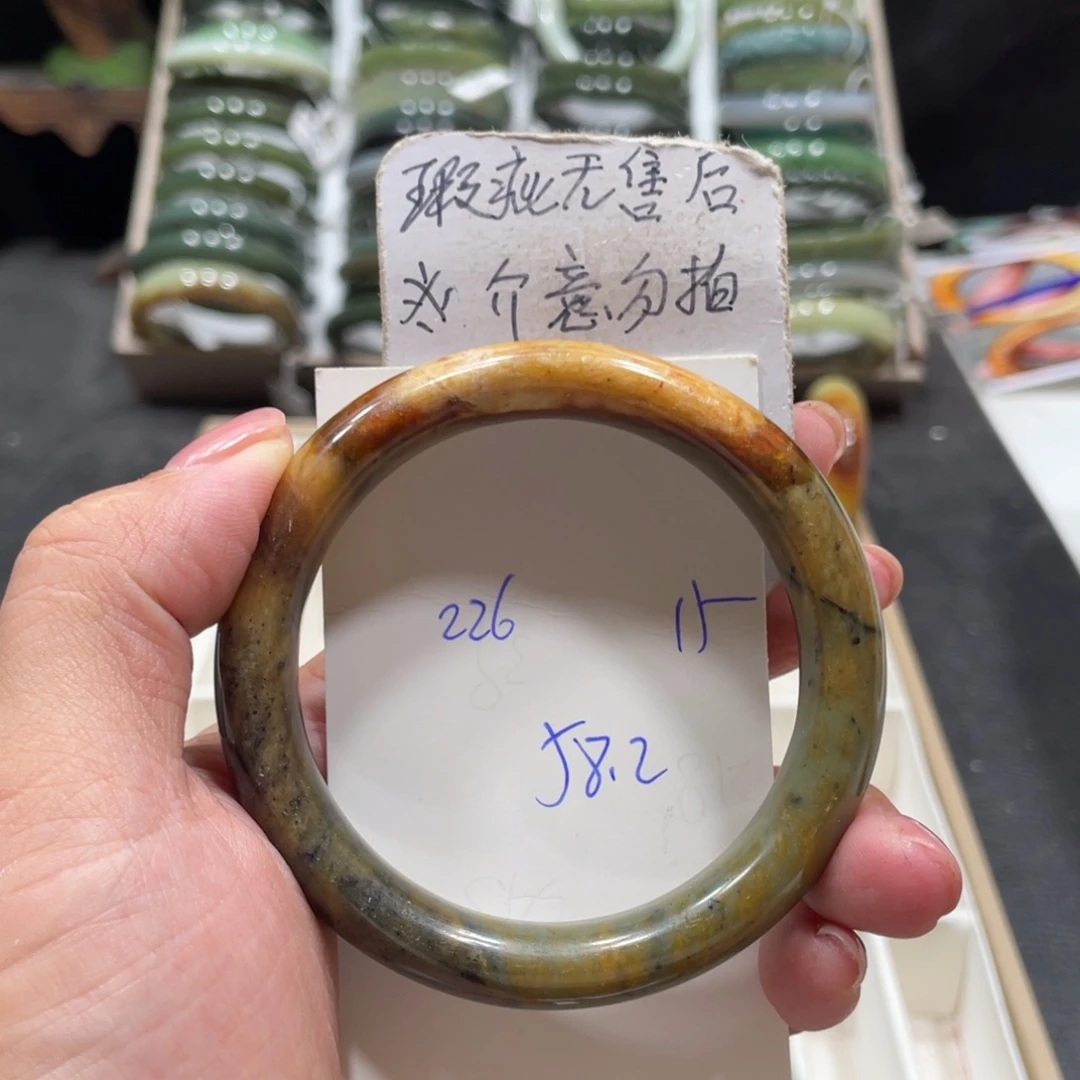 瑕疵无售后
必介意勿拍
226 15
58.2